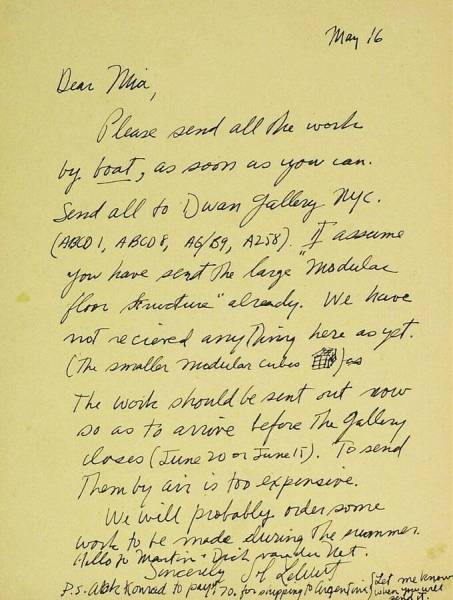 May 16
Dear Mia,
Please send all the work
by boat, as soon as you can.
Send all to Dwan Gallery NYC.
(ABCD 1, ABCD 8, A6/B9, A258). I assume
you have sent the large "Modular
floor structure" already. We have
not recieved anything here as yet.
(The smaller modular cubes ) as
The work should be sent out now
so as to arrive before the gallery
closes (June 20 or June 15). To send
them by air is too expensive.
We will probably order some
work to be made during the summer.
Hello to Martin + Dick van der Net.
Sincerely Sol LeWitt
P.S. Ask Konrad to pay 70. for shipping to Argentina
(Let me know
when you've
sent it.